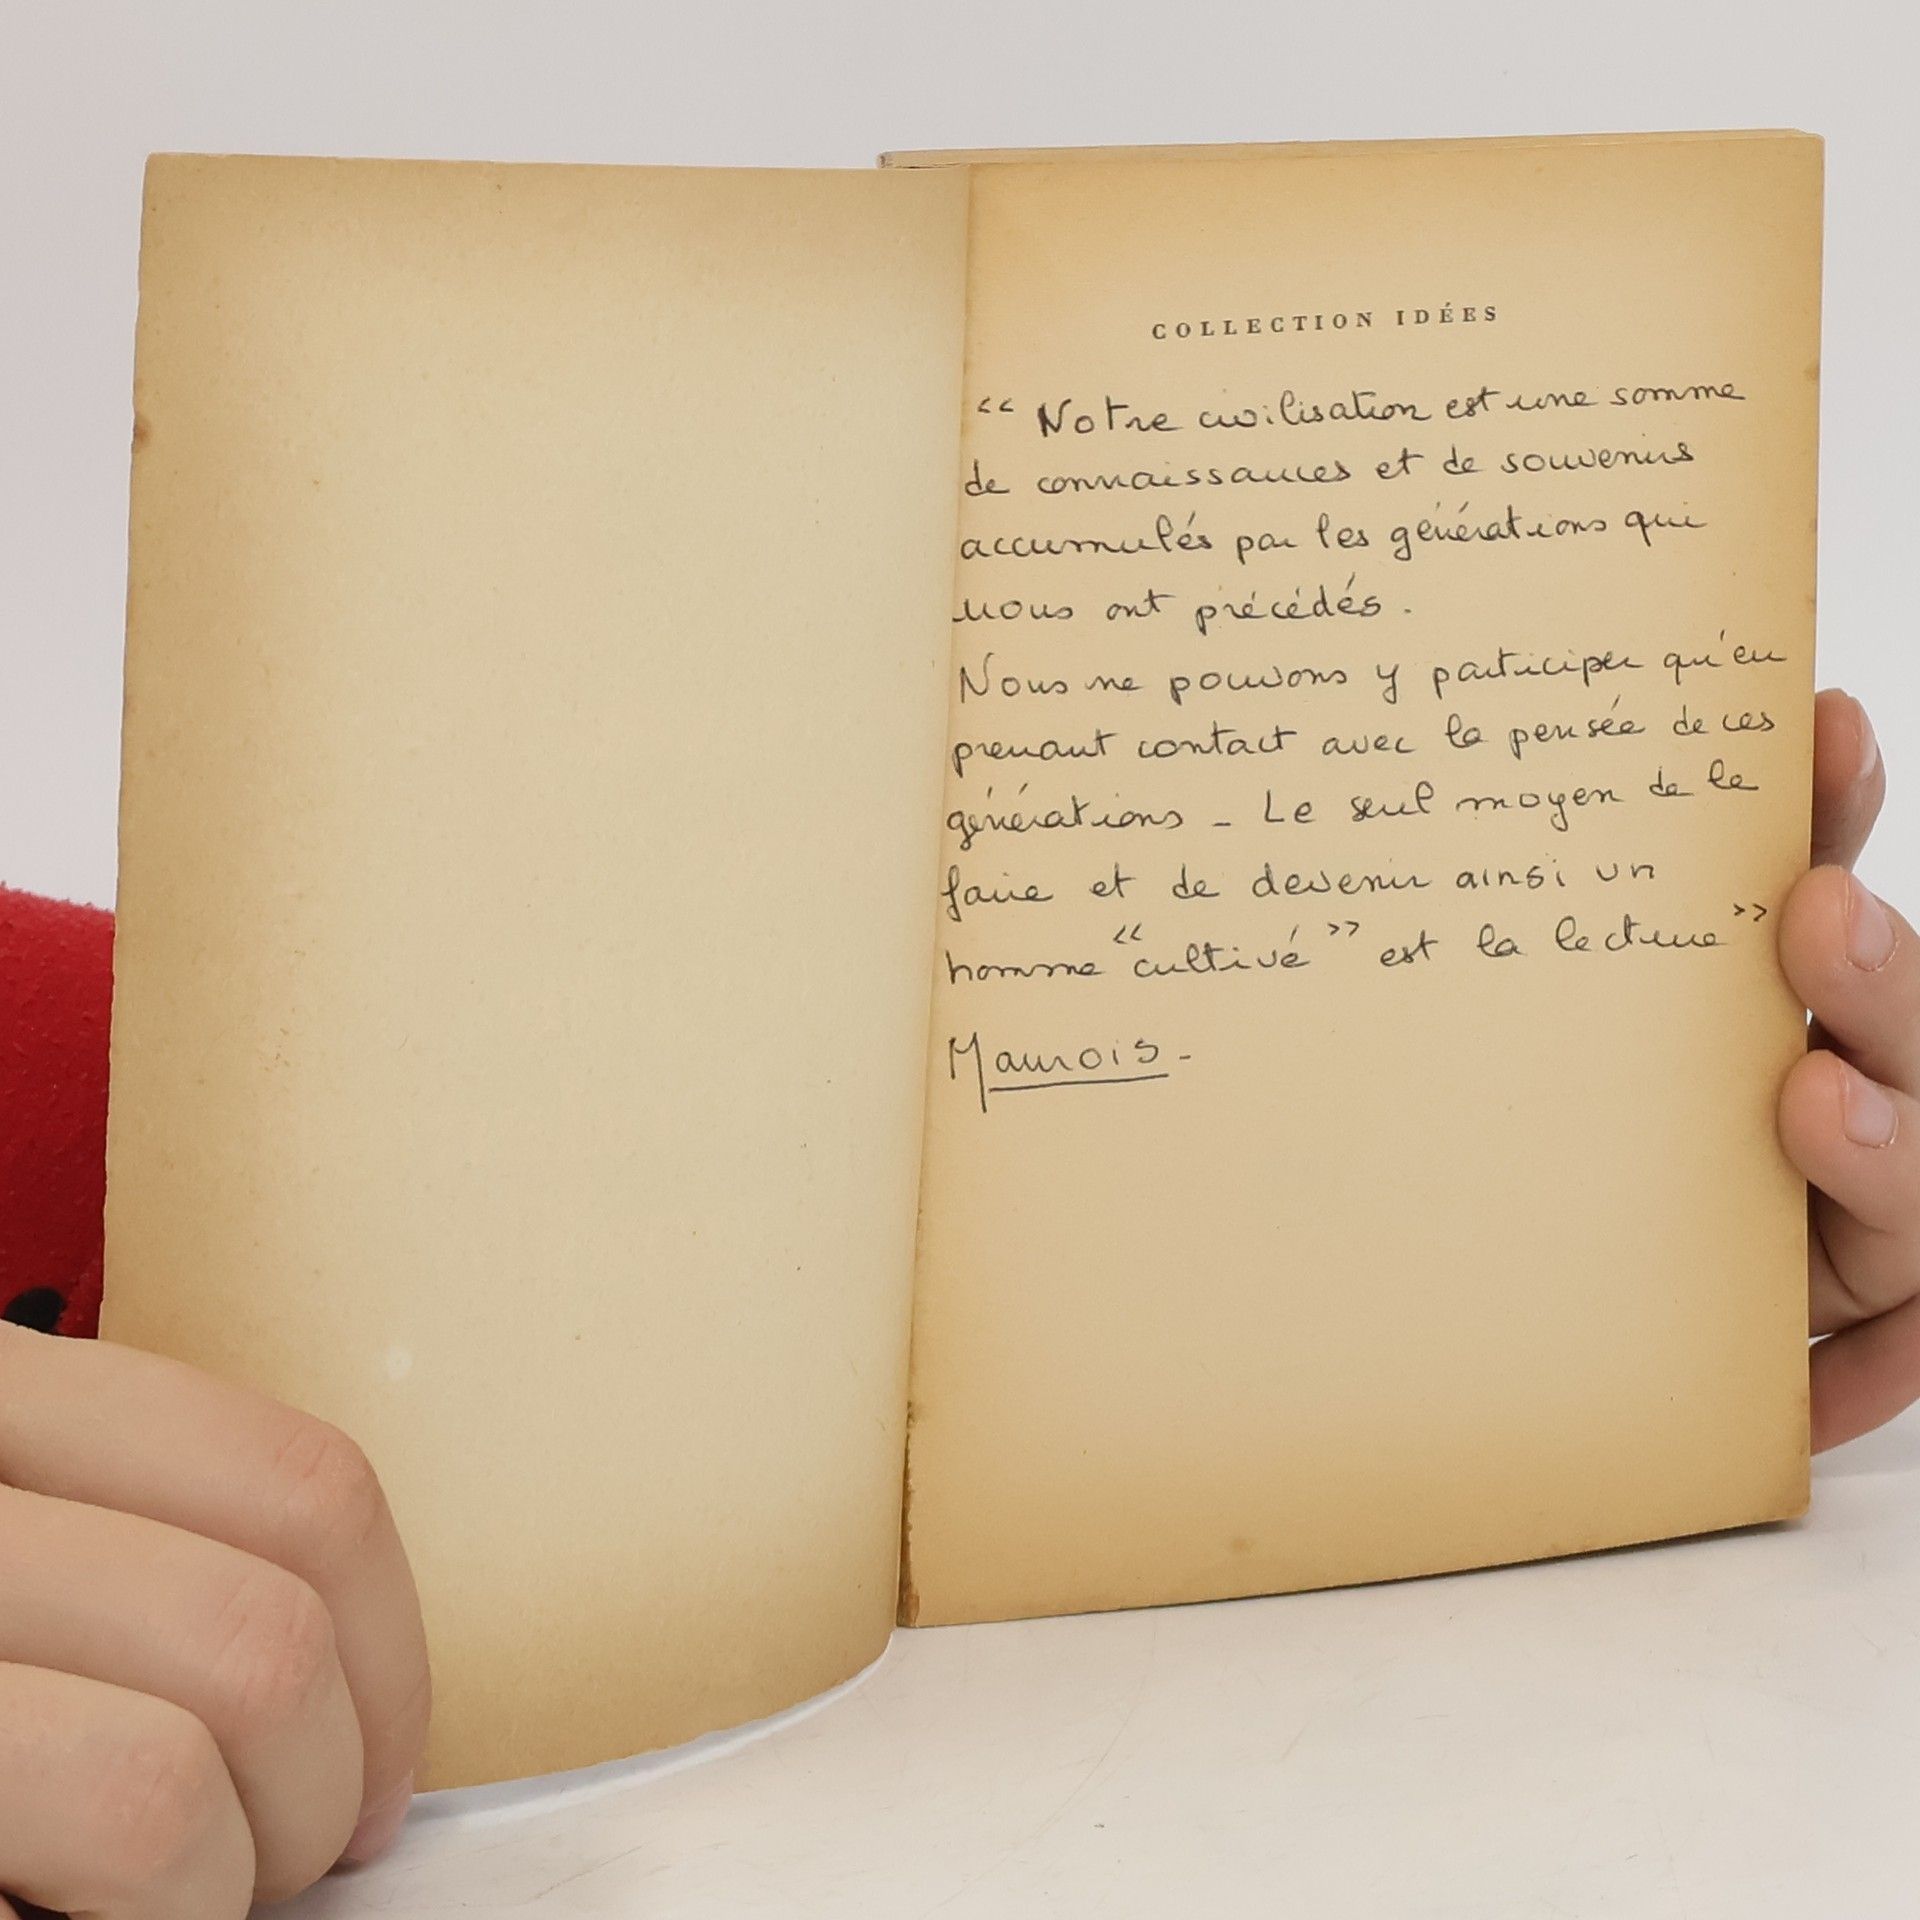 COLLECTION IDÉES
<< Notre civilisation est une somme
de connaissances et de souvenirs
accumulés par les générations qui
nous ont précédés.
Nous ne pouvons y participer qu'en
prenant contact avec la pensée de ces
générations - Le seul moyen de le
faire et de devenir ainsi un
homme << cultivé >> est la lecture >>
Maurois -